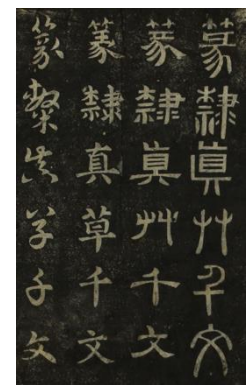 篆隸眞艸千文
篆隸眞艸千文
篆隸真草千文
篆隸真草千文